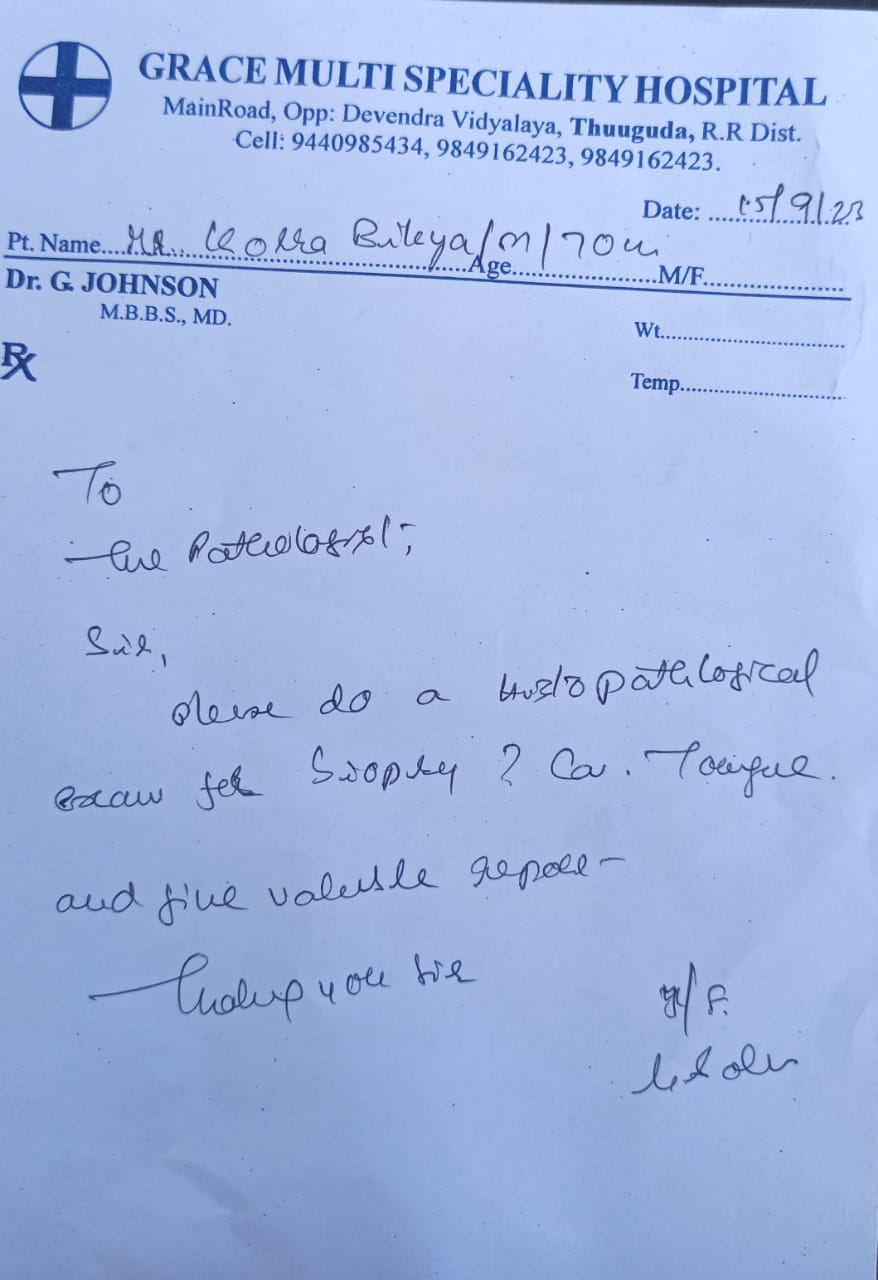 GRACE MULTI SPECIALITY HOSPITAL
MainRoad, Opp: Devendra Vidyalaya, Thuuguda, R.R Dist.
Cell: 9440985434, 9849162423, 9849162423.
Date: ....15/9/23
Pt. Name....Mr. Korra /M/70
Age....................M/F......................
Dr. G. JOHNSON
M.B.B.S., MD.
Wt.............................
Temp..........................
Rx
To
The Pathologist;
Sir,
please do a histopathological
exam for Biopsy ? Ca. Tongue.
and give valuable report
Thank you sir